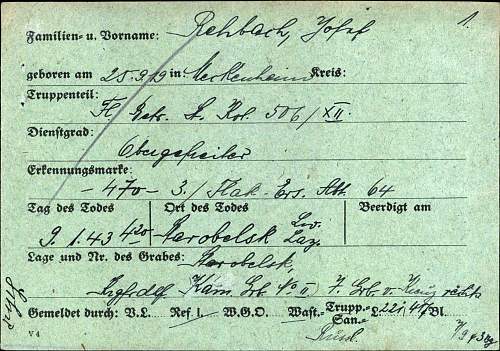 1.
Familien- u. Vorname: Rehbach, Josef
geboren am 25.9.19 in Meckenheim Kreis:
Truppenteil:
Fl/ Betr. St. Kol. 506/XII
Dienstgrad:
Obergefreiter
Erkennungsmarke:
- 470 - 3./ Flak-Ers. Abt. 64
Tag des Todes Ort des Todes Beerdigt am
9.1.43 4²⁰ Starobelsk Lw. Laz.
Lage und Nr. des Grabes: Starobelsk,
Kam. Grb. No II 7. Grb. v. Kreuz rechts
Gemeldet durch: V.L. Ref. W.G.O. Wast.- Trupp.- San.- L 221/47 Bl.
V 4